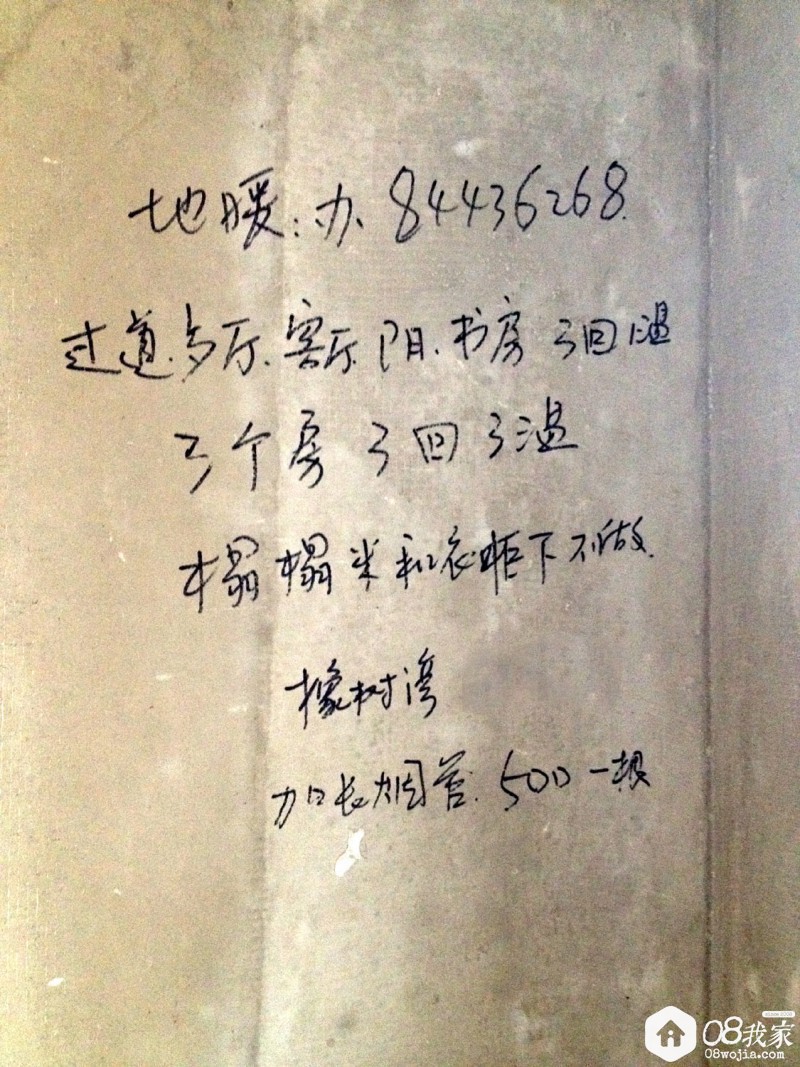 地暖:办.84436268.
过道.与厅.客厅.阳.书房 3回1温
3个房 3回3温
榻榻米和衣柜下不做.
橡树湾
加长烟管.500一根
08我家
08wojia.com